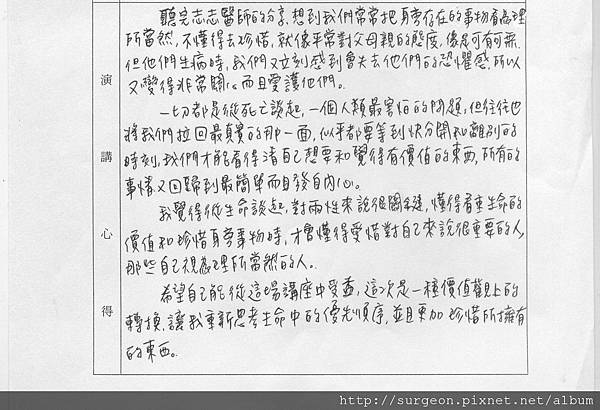 聽完志志醫師的分享,想到我們常常把身旁存在的事物看為理
所當然,不懂得去珍惜,就像平常對父母親的態度,像是可有可無.
但他們生病時,我們又立刻感到會失去他們的恐懼感,所以
又變得非常關心而且愛護他們。
一切都是從死亡談起,一個人類最害怕的問題,但往往也
將我們拉回最真實的那一面,似乎都要等到快分開和離別的
時刻,我們才能看得清自己想要和覺得有價值的東西,所有的
事情又回歸到最簡單而且發自內心。
我覺得從生命談起,對兩性來說很關鍵,懂得看重生命的
價值和珍惜身旁事物時,才會懂得愛惜對自己來說很重要的人,
那些自己視為理所當然的人.
希望自己能從這場講座中受益,這次是一種價值觀上的
轉換,讓我重新思考生命中的優先順序,並且更加珍惜所擁有
的東西。
演
講
心
得
http://surgeon.pixnet.net/album